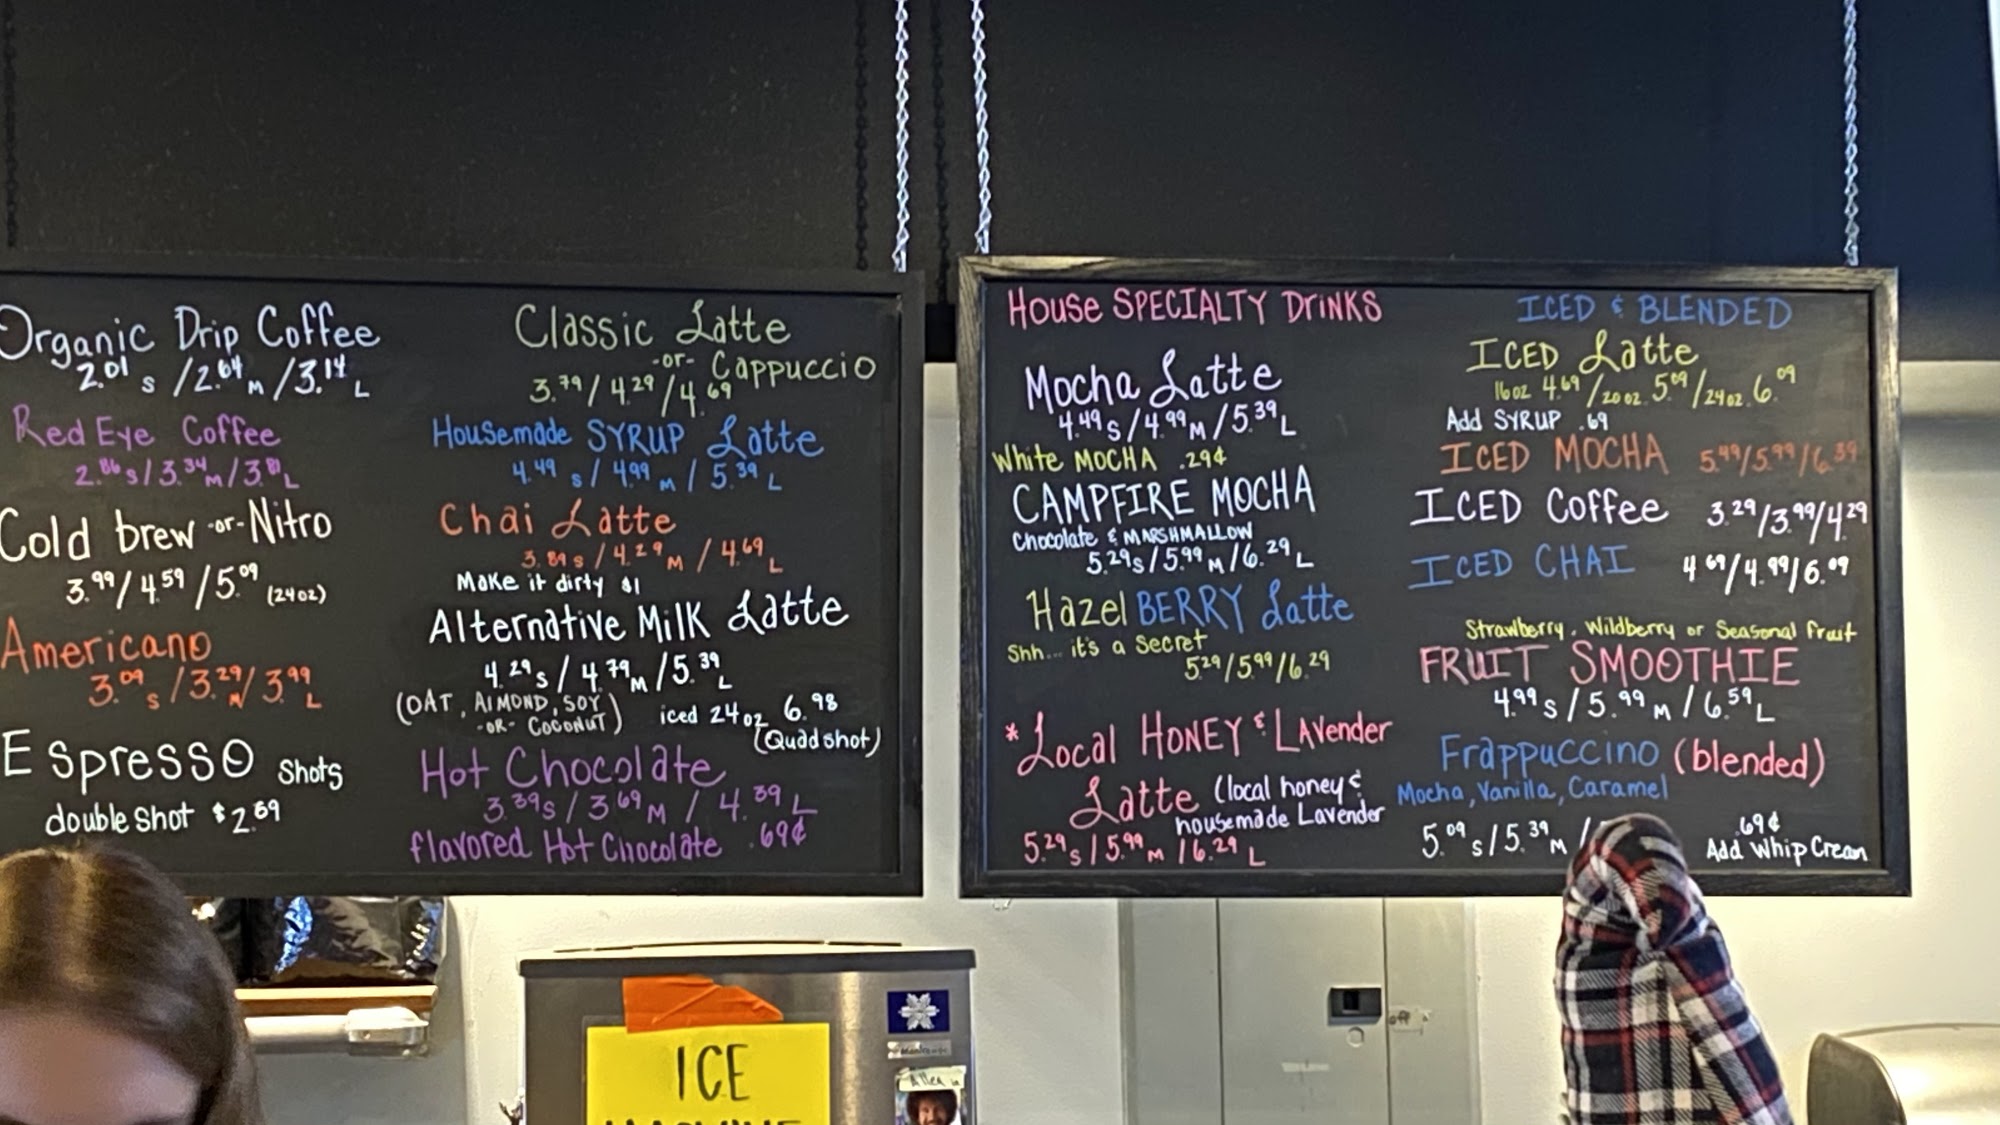 Organic Drip Coffee
2.01 S / 2.64 M / 3.14 L
Red Eye Coffee
2.86 S / 3.34 M / 3.81 L
Cold brew -or- Nitro
3.99 / 4.59 / 5.09 (24oz)
Americano
3.09 S / 3.29 M / 3.99 L
Espresso Shots
double shot $2.69
Classic Latte
-or- Cappuccio
3.79 / 4.29 / 4.69
Housemade SYRUP Latte
4.49 S / 4.99 M / 5.39 L
Chai Latte
3.89 S / 4.29 M / 4.69 L
Make it dirty $1
Alternative Milk Latte
4.29 S / 4.79 M / 5.39 L
(OAT, ALMOND, SOY
-OR- COCONUT)
iced 24oz 6.98
(Quad shot)
Hot Chocolate
3.39 S / 3.69 M / 4.39 L
flavored Hot Chocolate .69¢
House SPECIALTY DrinKS
Mocha Latte
4.49 S / 4.99 M / 5.39 L
White MOCHA .29¢
CAMPFIRE MOCHA
Chocolate & MARSHMALLOW
5.29 S / 5.99 M / 6.29 L
Hazel BERRY Latte
Shh... it's a Secret
5.29 / 5.99 / 6.29
*Local HONEY & LAvender
Latte (local honey &
housemade Lavender
5.29 S / 5.99 M / 6.29 L
ICED & BLENDED
ICED Latte
16oz 4.69 / 20oz. 5.09 / 24oz. 6.09
Add SYRUP .69
ICED MOCHA 5.49 / 5.99 / 6.39
ICED Coffee 3.29 / 3.99 / 4.29
ICED CHAI 4.69 / 4.99 / 6.09
Strawberry, Wildberry or Seasonal Fruit
FRUIT SMOOTHIE
4.99 S / 5.99 M / 6.59 L
Frappuccino (blended)
Mocha, Vanilla, Caramel
5.09 S / 5.39 M /
.69¢
Add Whip Cream
ICE
off